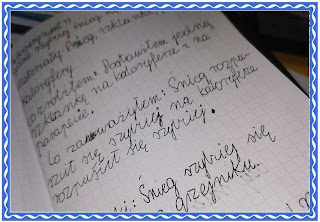 szybciej śnieg
Materiały: śnieg, szklanki,
kaloryfery
o zrobiłem: Postawiłem jedną
szklankę na kaloryferze i na
parapecie.
Co zauważyłem: Śnieg rozpu-
ścił się szybciej na kaloryferze
rozpuścił się szybciej.
Śnieg szybciej się
grzejniku